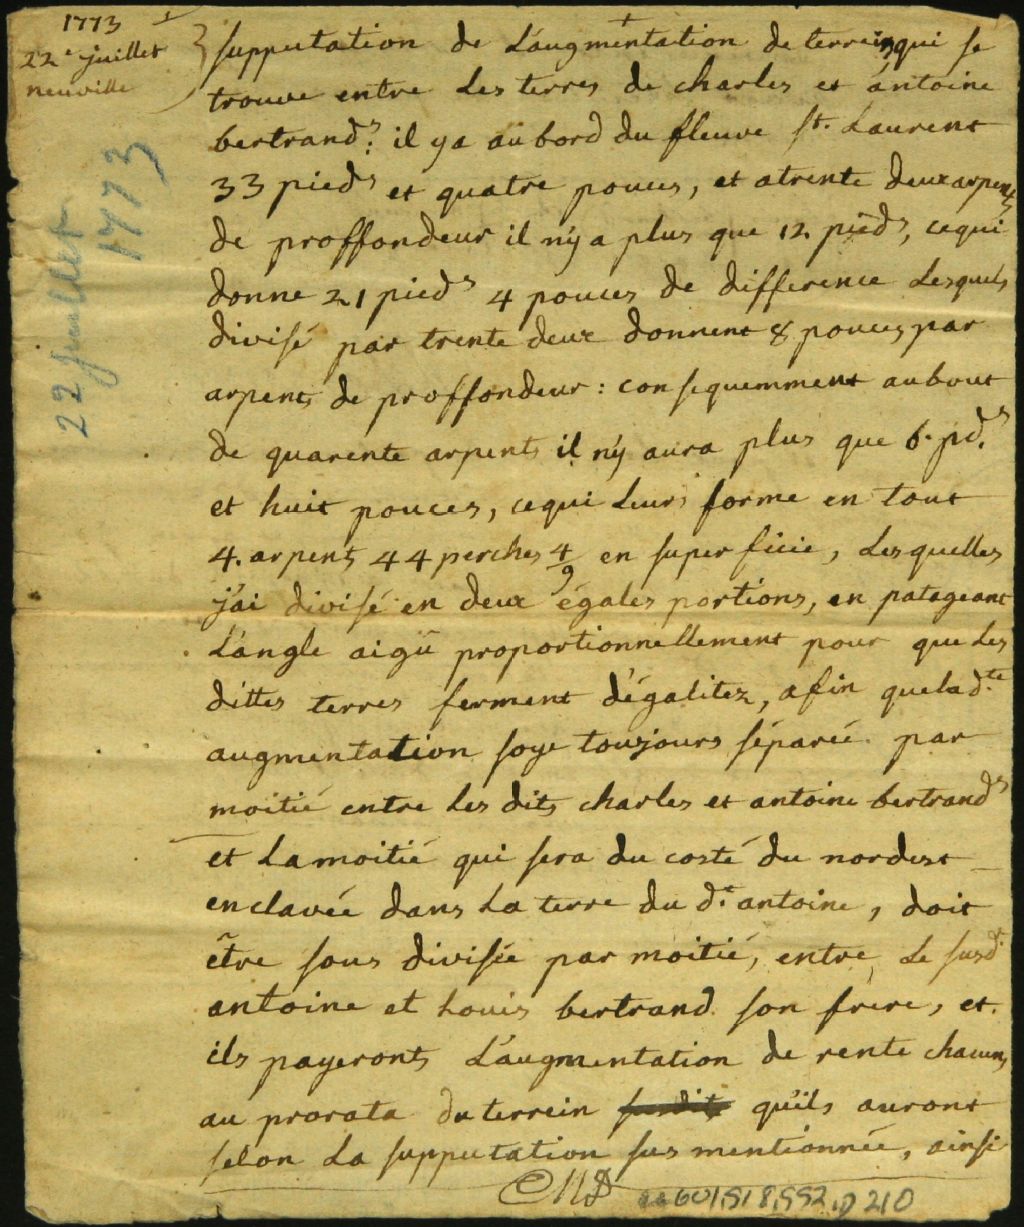 1773
22e juillet
neuville
22 Juillet
1773
supputation de L'augmentation de terrein qui se
trouve entre Les terres de charles et antoine
bertrands: il ya au bord du fleuve st. Laurent
33 pieds et quatre pouces, et atrente deux arpents
de proffondeur il n'y a plus que 12. pieds, cequi
donne 21 pieds 4 pouces de difference Lesquels
divisé par trente deux donnent 8 pouces par
arpents de proffondeur: consequemment aubout
de quarente arpents il n'y aura plus que 6. pds.
et huit pouces, cequi Leurs forme en tout
4. arpents 44 perches 4/9 en superficie, Lesquelles
j'ai divisé en deux égales portions, en patageant
L'angle aigü proportionnellement pour que Les
dittes terres ferment d'égalitez, afin quelad.te
augmentation soye toujours séparée par
moitié entre Les dits charles et antoine bertrands
et Lamoitié qui sera du costé du nordest
enclavée dans La terre du d.t antoine, doit
être sous divisée par moitié, entre Le susd.t
antoine et Louis bertrand son frere, et
ils payeronts L'augmentation de rente chacuns
au prorata du terrein susdits qu'ils auront
selon La supputation sus mentionnée, ainsi
601,S18,SS2,D210